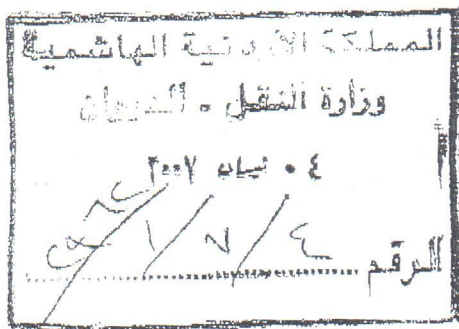 المملكة الأردنية الهاشمية
وزارة النقل - الديوان
٠٤ نيسان ٢٠٠٧
الرقم ٤/٧/١/